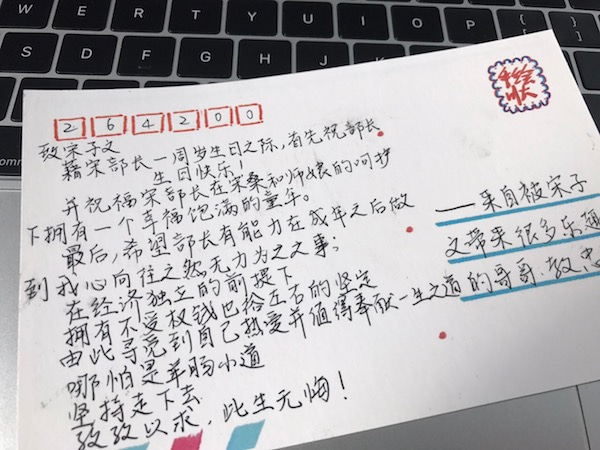 W E R T Y U I O P
S D F G H J K L
264200
致宋子文
藉宋部长一周岁生日之际,首先祝部长
生日快乐!
并祝福宋部长在宋桑和师娘的呵护
下拥有一个幸福饱满的童年。
最后,希望部长有能力在成年之后做
到我心向往之然无力为之之事:
在经济独立的前提下
拥有不受权钱左右的坚定
由此寻觅到自己热爱并值得奉献一生之道
哪怕是羊肠小道
坚持走下去
孜孜以求,此生无悔!
——来自被宋子
文带来很多乐趣
的哥哥
手绘